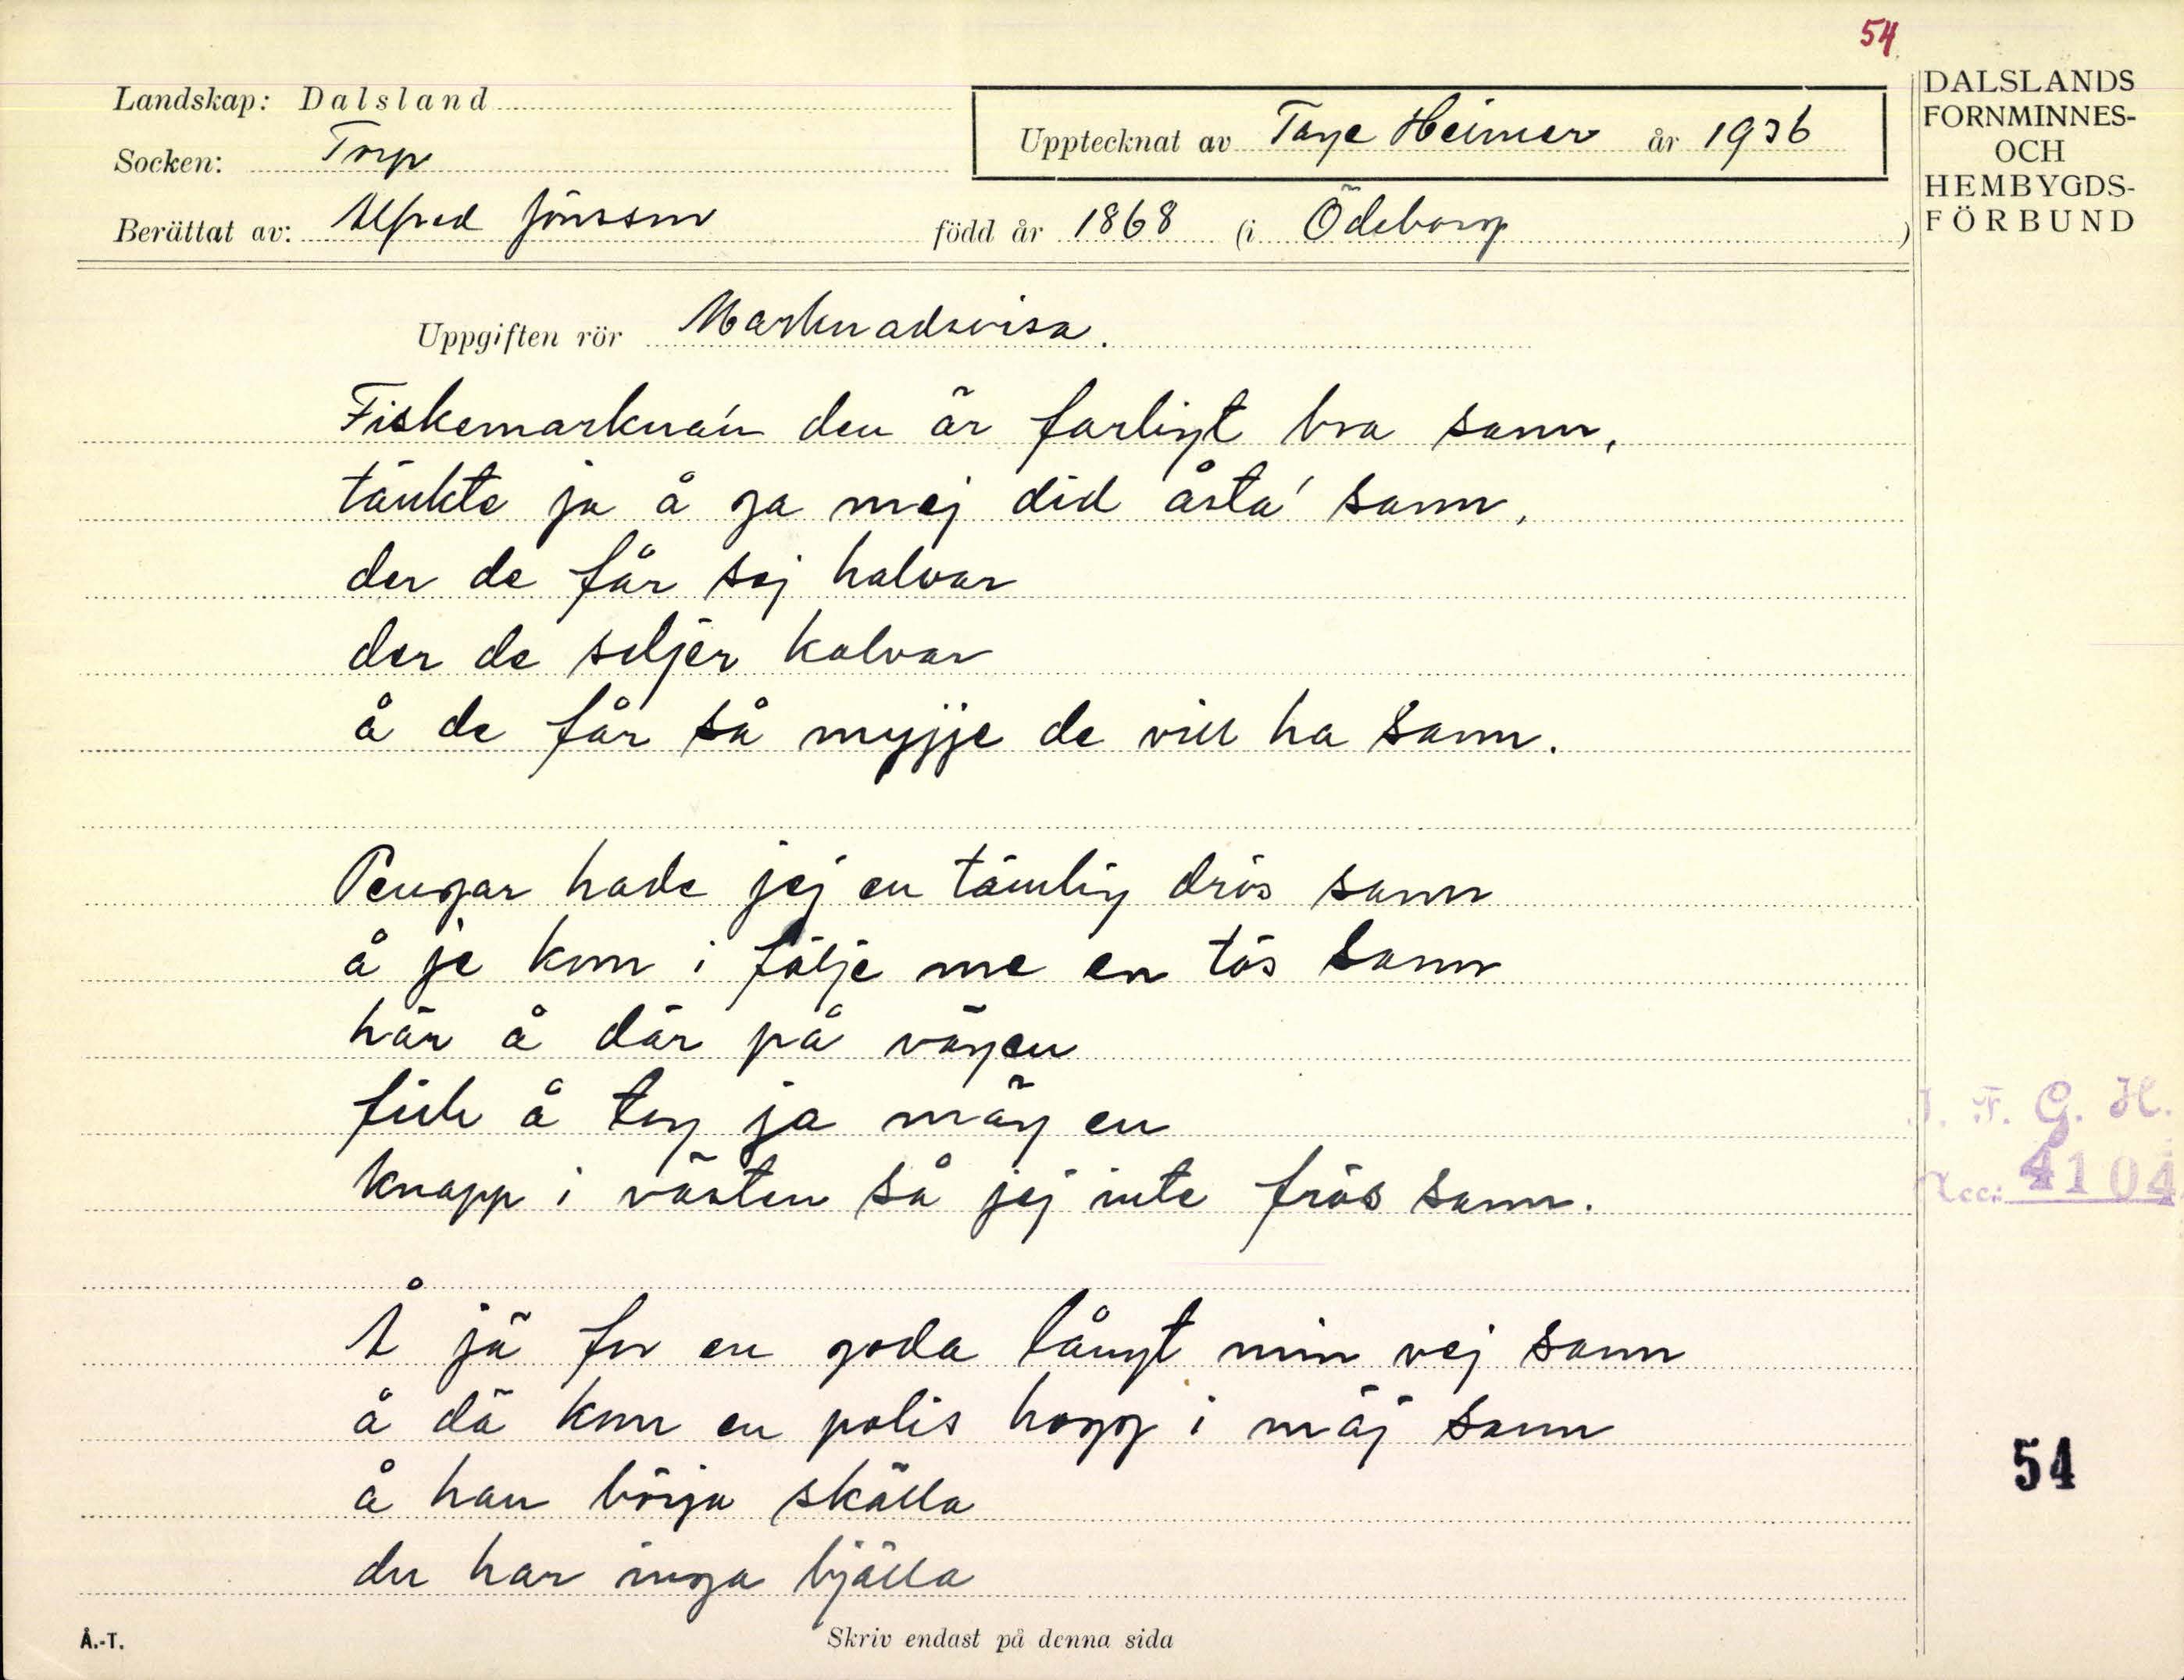 54
DALSLANDS
FORNMINNES-
OCH
HEMBYGDS-
FÖRBUND
Landskap: Dalsland
Upptecknat av Tage Heimer år 1936
Socken: Torp
Berättat av: Alfred Jönsson född år 1868 (i Ödeborg)
Uppgiften rör Marknadsvisa.
Fiskemarkna'n den är farligt bra sann,
tänkte ja å ga mej did åsta' sann,
der de får sej halvar
der de seljer kalvar
å de får så myjje de vill ha sann.
Pengar hade jej en tämlig drös sann
å je kom i följe me en tös sann
här å där på vägen
fick å tog ja mäg en
knapp i västen så jej inte frös sann.
Å jä for en goda långt min vej sann
å dä kom en polis hogg i mäj sann
å han börja skälla
du har inga bjälla
I. F. G. H.
Acc: 4104
54
Å.-T.
Skriv endast på denna sida